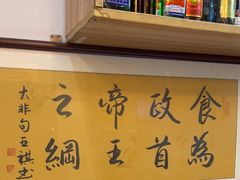 食為
政首
帝王
之綱
大非句五祺书